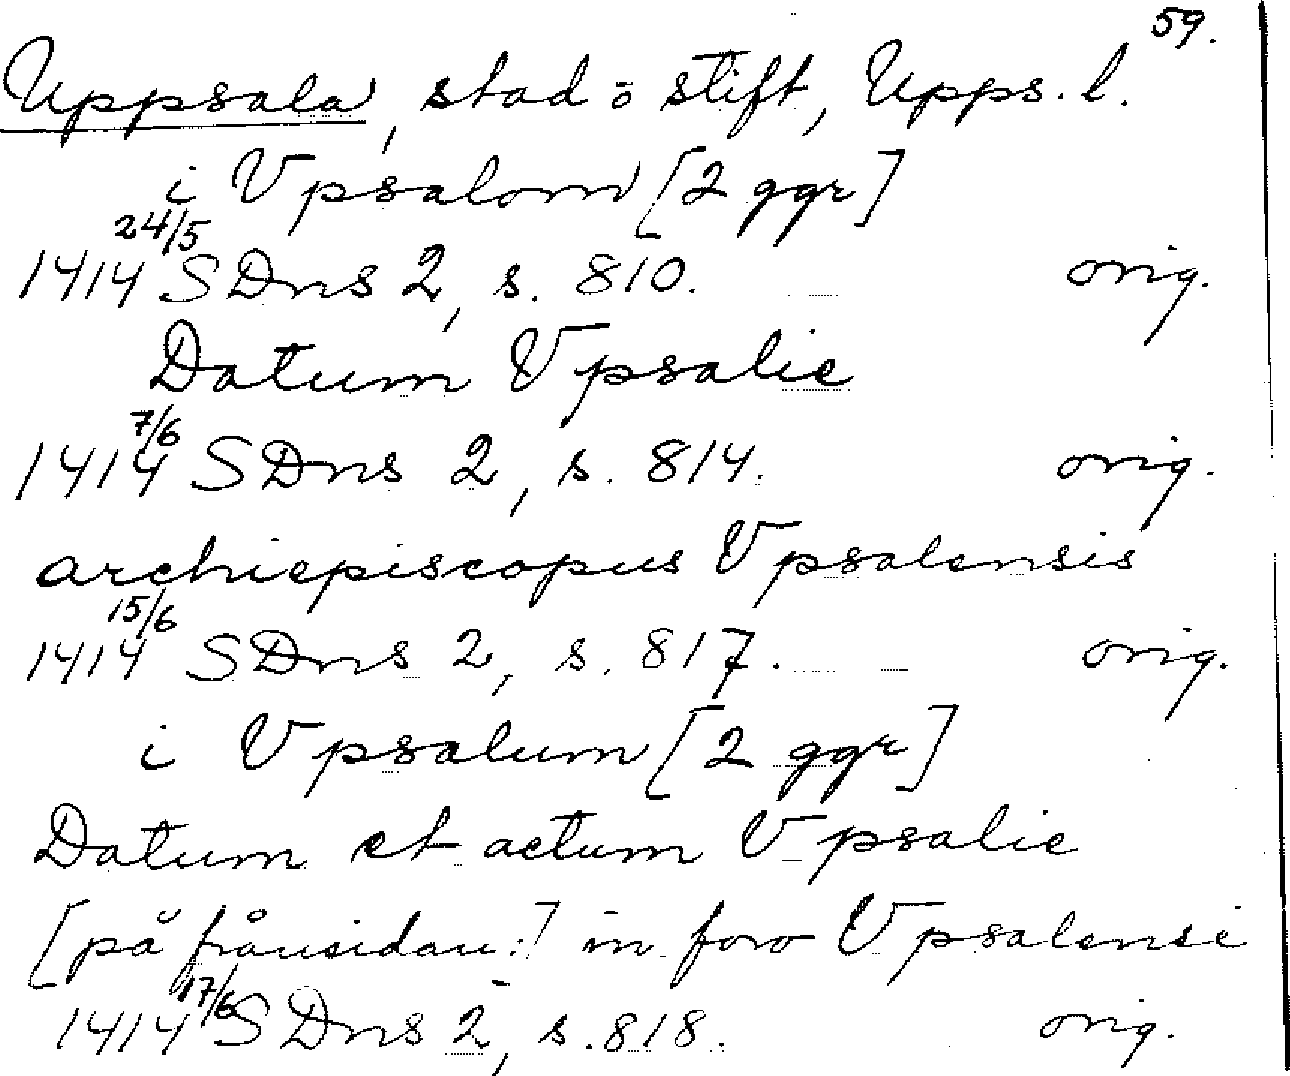 59.
Uppsala, stad o stift, Upps. l.
i Vpsalom [2 ggr]
24/5
1414 SDns 2, s. 810. orig.
Datum Vpsalie
7/6
1414 SDns 2, s. 814. orig.
archiepiscopus Vpsalensis
15/6
1414 SDns 2, s. 817. orig.
i Vpsalum [2 ggr]
Datum et actum Vpsalie
[på frånsidan:] in foro Vpsalensi
17/6
1414 SDns 2, s. 818. orig.